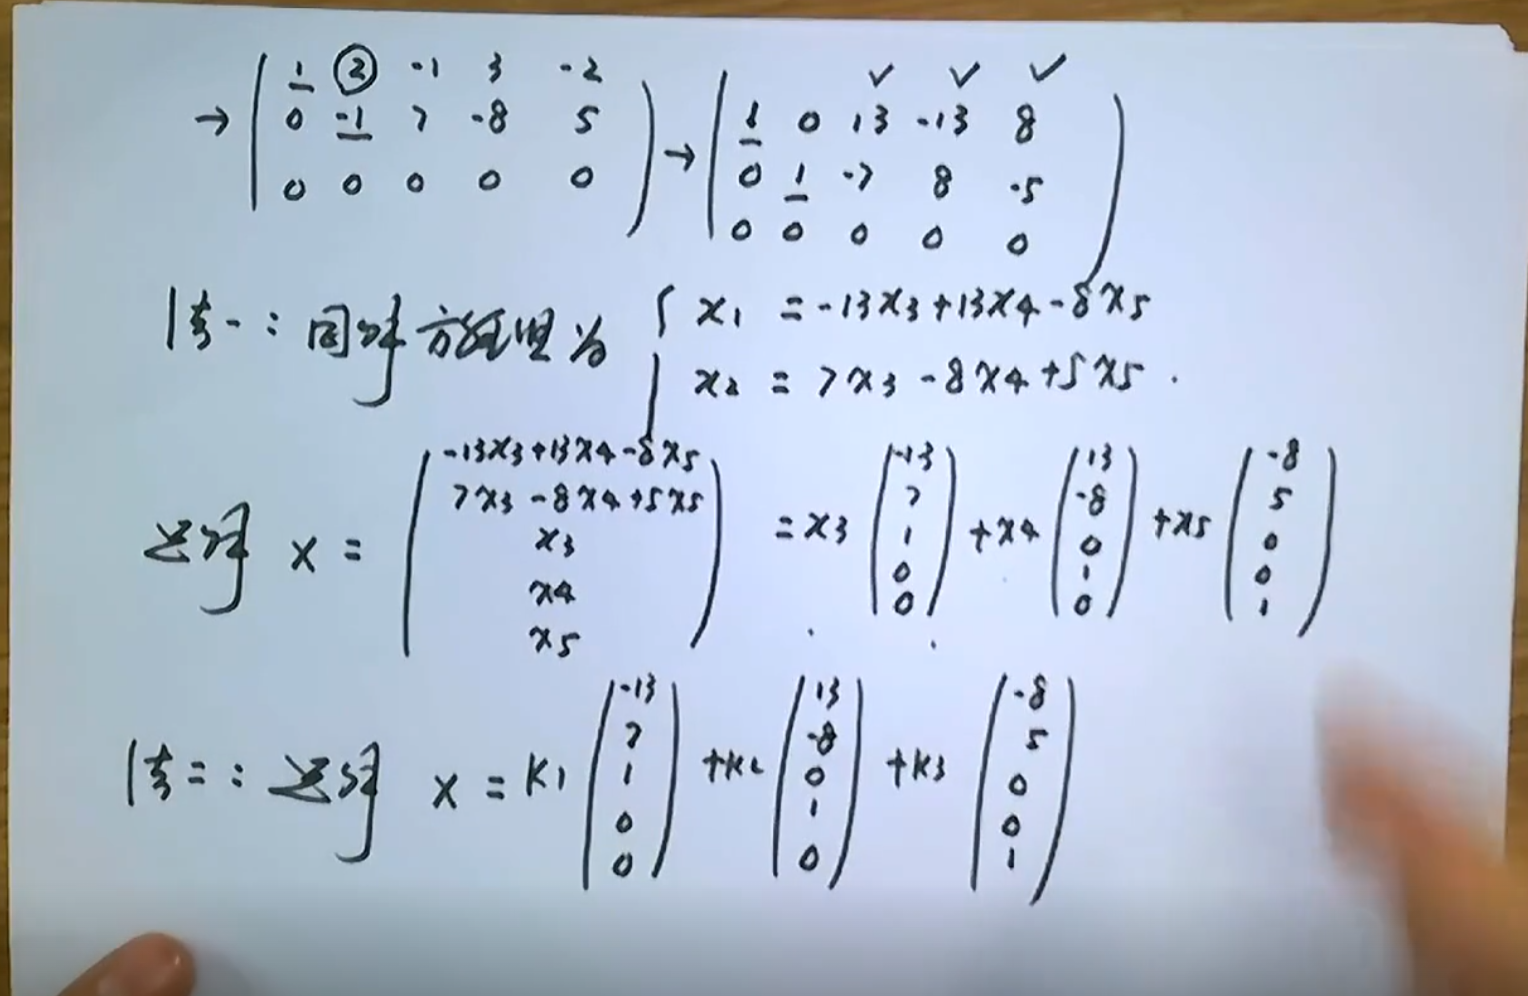 → ( 1 ② -1 3 -2
0 -1 7 -8 5
0 0 0 0 0 ) → ( ✓ ✓ ✓
1 0 13 -13 8
0 1 -7 8 -5
0 0 0 0 0 )
法一：同解方程组为 { x1 = -13x3+13x4-8x5
x2 = 7x3-8x4+5x5.
通解 x = ( -13x3+13x4-8x5
7x3-8x4+5x5
x3
x4
x5 ) = x3 ( -13 7 1 0 0 ) + x4 ( 13 -8 0 1 0 ) + x5 ( -8 5 0 0 1 )
法二：通解 x = k1 ( -13 7 1 0 0 ) + k2 ( 13 -8 0 1 0 ) + k3 ( -8 5 0 0 1 )